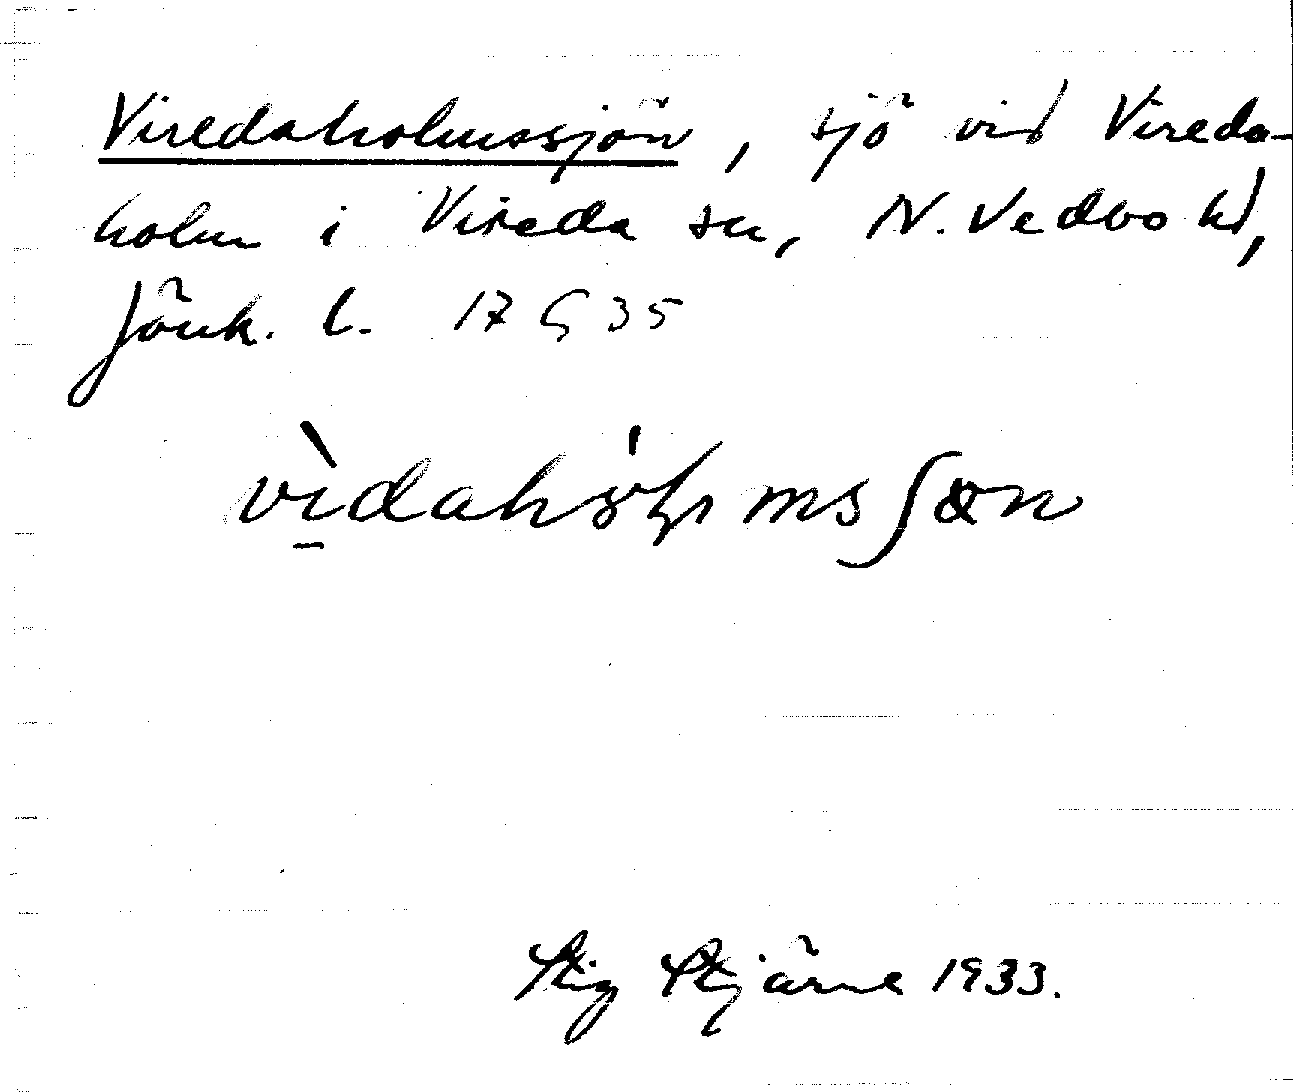 Viredaholmssjön, sjö vid Vireda-
holm i Vireda sn, N. Vedbo hd,
Jönk. l. 17 G 35
Stig Stjärne 1933.